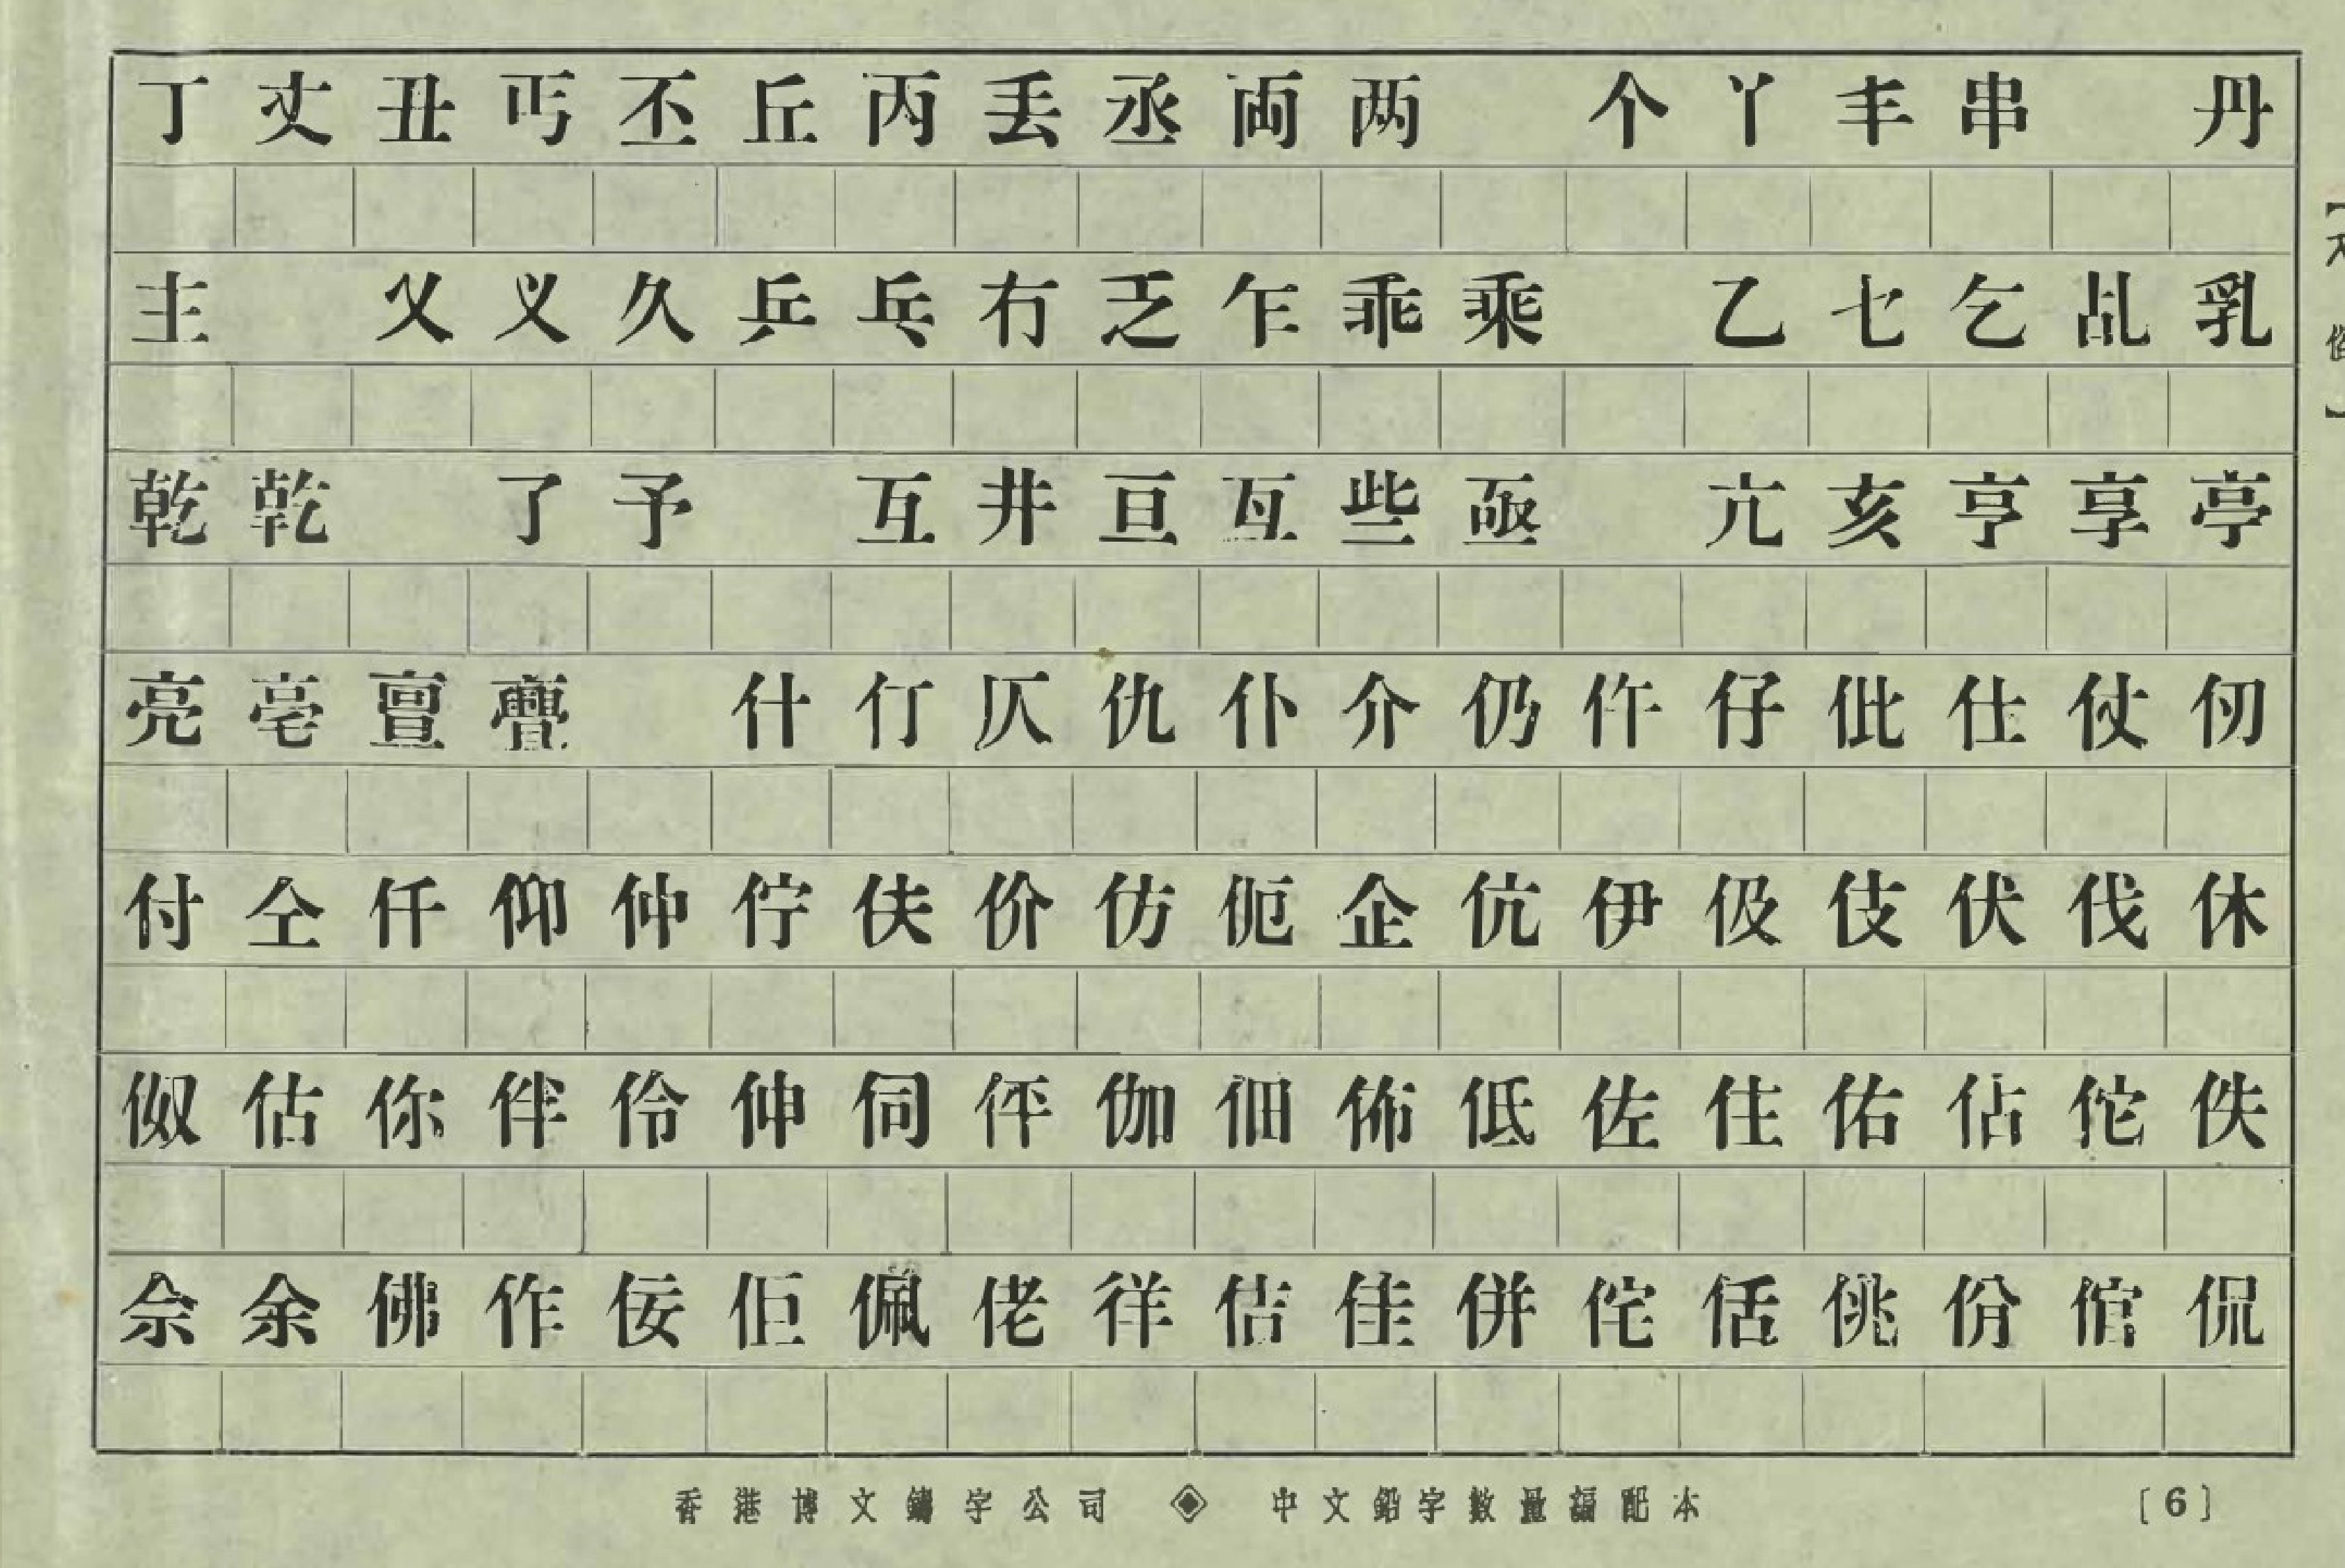 丁丈丑丐丕丘丙丢丞両两 个丫丰串 丹
主 乂义久乒乓冇乏乍乖乘 乙乜乞乩乳
乾乾 了予 互井亘亙些亟 亢亥亨享亭
亮亳亶亹 什仃仄仇仆介仍仵仔仳仕仗仞
付仝仟仰仲佇伕价仿伌企伉伊伋伎伏伐休
伮估你伴伶伸伺伻伽佃佈低佐住佑佔佗佚
佘余佛作佞佢佩佬佯佶佳併侘佸佻份倌侃
香港博文鑄字公司 ◈ 中文鉛字數量編配本
〔6〕